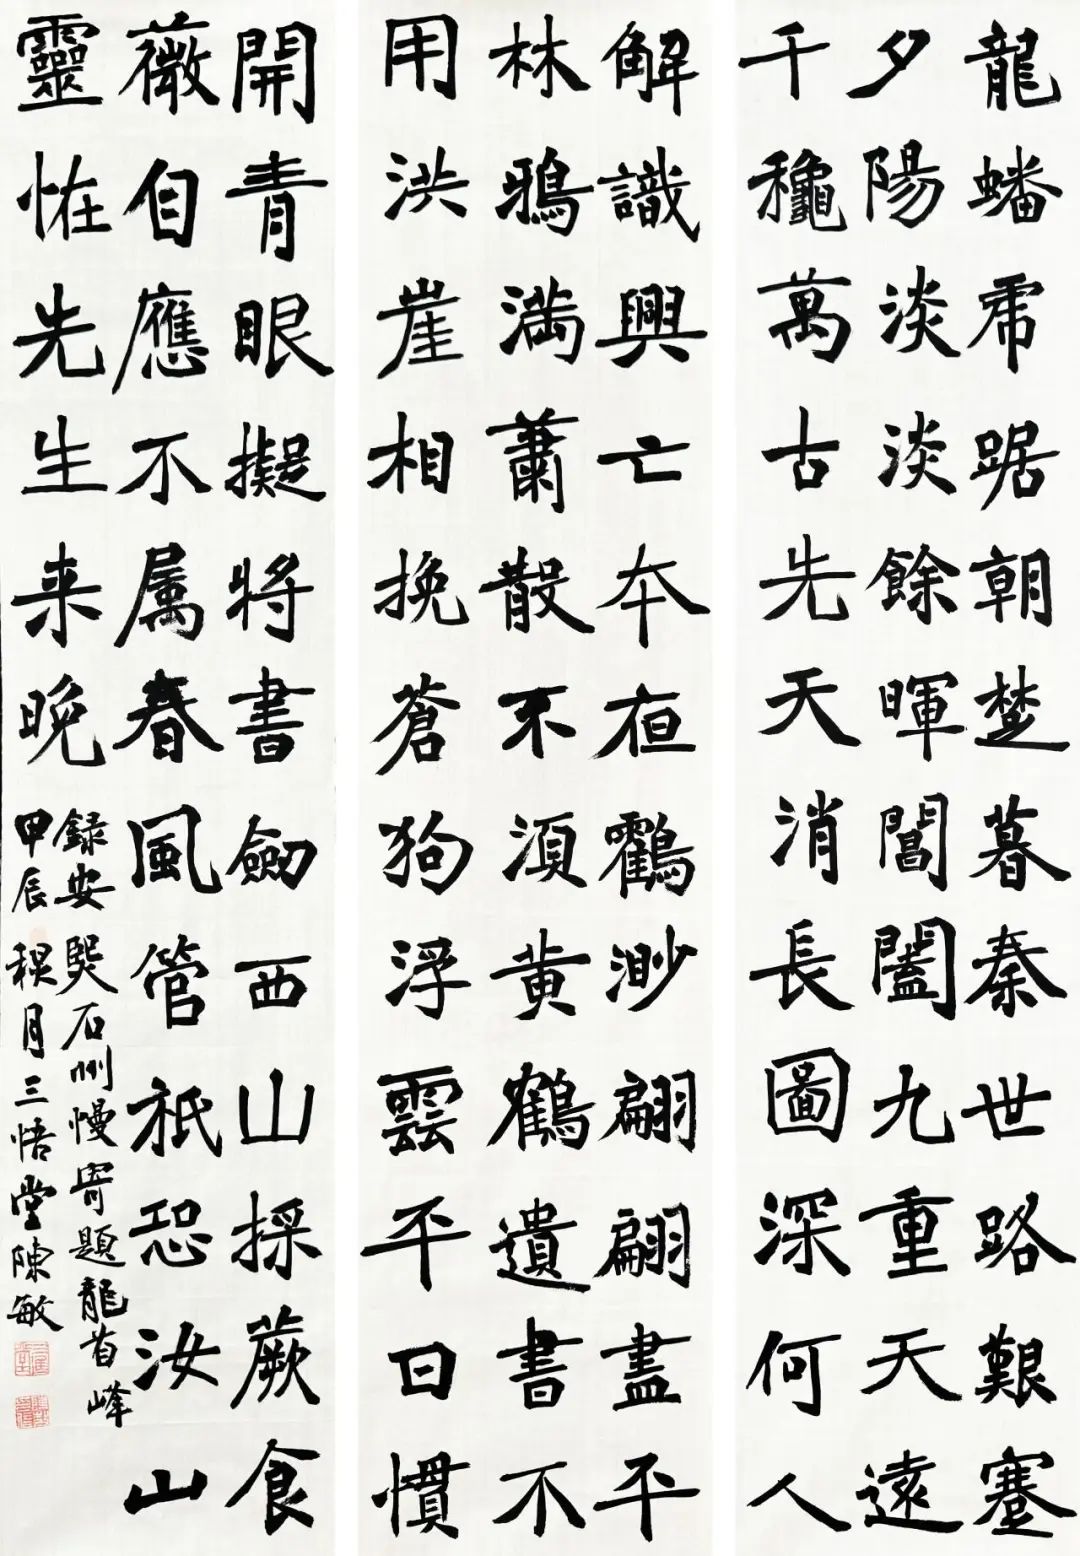 龍蟠虎踞朝楚暮秦世路艱蹇
夕陽淡淡餘暉閶闔九重天遠
千龝萬古先天消長圖深何人
解識興亡夲亱鸖渺翩翩盡平
林鴉滿蕭散不須黄鶴遺書不
用洪崖相挽蒼狗浮雲平日慣
開青眼擬將書劒西山採蕨食
薇自應不属春風管祇恐汝山
靈恠先生来晚
録安熙石州慢寄題龍首峰
甲辰月三悟堂陳敏